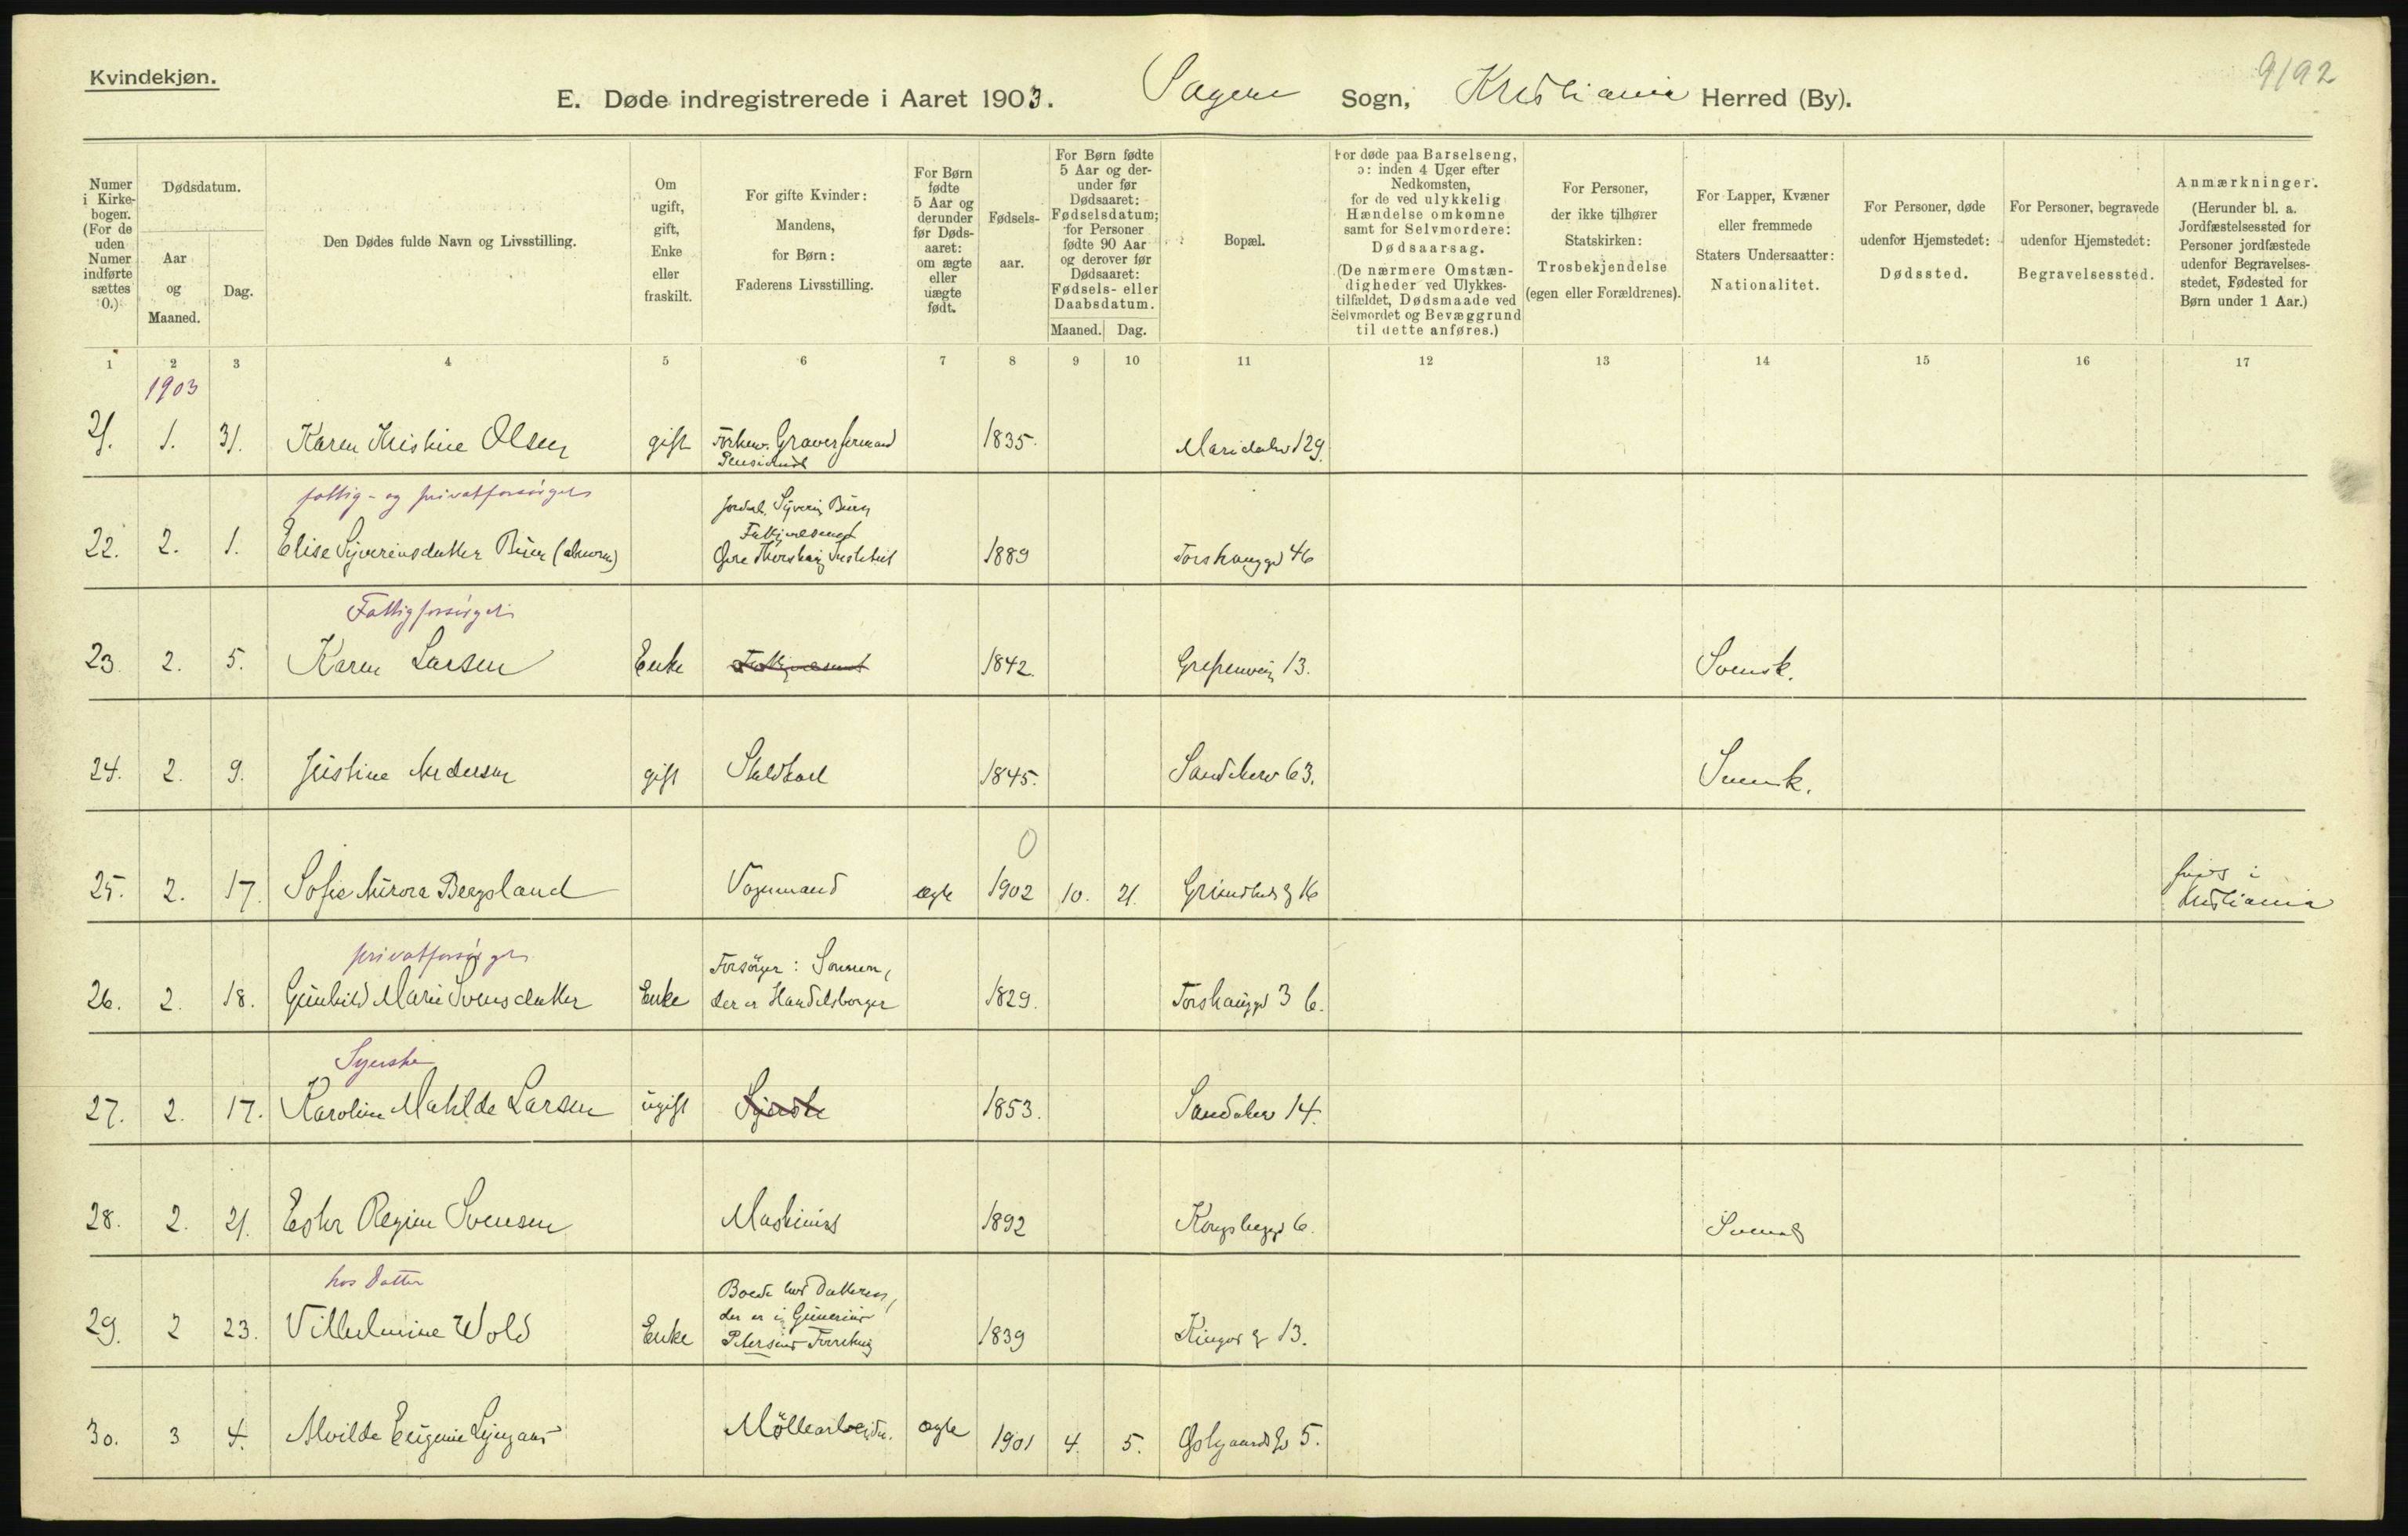 Kvindekjøn.
9192
E. Døde indregistrerede i Aaret 1903. Sagene Sogn, Kristiania Herred (By).
Numer i Kirkebogen. (For de uden Numer indførte sættes 0.)
Dødsdatum.
Aar og Maaned.
Dag.
Den Dødes fulde Navn og Livsstilling.
Om ugift, gift, Enke eller fraskilt.
For gifte Kvinder: Mandens, for Børn: Faderens Livsstilling.
For Børn fødte 5 Aar og derunder før Dødsaaret: om ægte eller uægte født.
Fødselsaar.
For Børn fødte 5 Aar og derunder før Dødsaaret: Fødselsdatum; for Personer fødte 90 Aar og derover før Dødsaaret: Fødsels- eller Daabsdatum.
Maaned. Dag.
Bopæl.
For døde paa Barselseng, ɔ: inden 4 Uger efter Nedkomsten, for de ved ulykkelig Hændelse omkomne samt for Selvmordere: Dødsaarsag. (De nærmere Omstændigheder ved Ulykkestilfældet, Dødsmaade ved Selvmordet og Bevæggrund til dette anføres.)
For Personer, der ikke tilhører Statskirken: Trosbekjendelse (egen eller Forældrenes).
For Lapper, Kvæner eller fremmede Staters Undersaatter: Nationalitet.
For Personer, døde udenfor Hjemstedet: Dødssted.
For Personer, begravede udenfor Hjemstedet: Begravelsessted.
Anmærkninger. (Herunder bl. a. Jordfæstelsessted for Personer jordfæstede udenfor Begravelsesstedet, Fødested for Børn under 1 Aar.)
1 2 3 4 5 6 7 8 9 10 11 12 13 14 15 16 17
1903
21. 1. 31. Karen Kristine Olsen gift Forhenv. Graverformand 1835. Maridalsv 129.
Pensionist
fattig- og privatforsørget
22. 2. 1. Elise Syverinsdatter Buer 1889 Torshauggd 46
Fattigforsørget
23. 2. 5. Karen Larsen Enke Fattigvæsenet 1842. Grefsenvein 13. Svensk.
24. 2. 9. Justine Andersen gift Staldkarl 1845. Sandakerv 63. Svensk.
0
25. 2. 17. Sofie Aurora Bergsland Vognmand ægte 1902 10. 21. 16 født i Kristiania
privatforsørget
26. 2. 18. Gunhild Marie Svensdatter Enke Forsørger: Sønnen, der er Handelsborger 1829. Torshauggd 3 b.
Syerske
27. 2. 17. Karoline Matilde Larsen ugift Syerske 1853. Sandakerv 14.
28. 2. 21. Ester Regine Svensen Maskinist 1892 6. Svensk
hos Datter
29. 2 23. Vilhelmine Wold Enke Boede hos Datteren, der er i Gunerius Petersens Forretning 1839 Kingos g 13.
30. 3 4. Alvilde Eugenie Lyngaas Möllearbeider. ægte 1901 4. 5. 5.